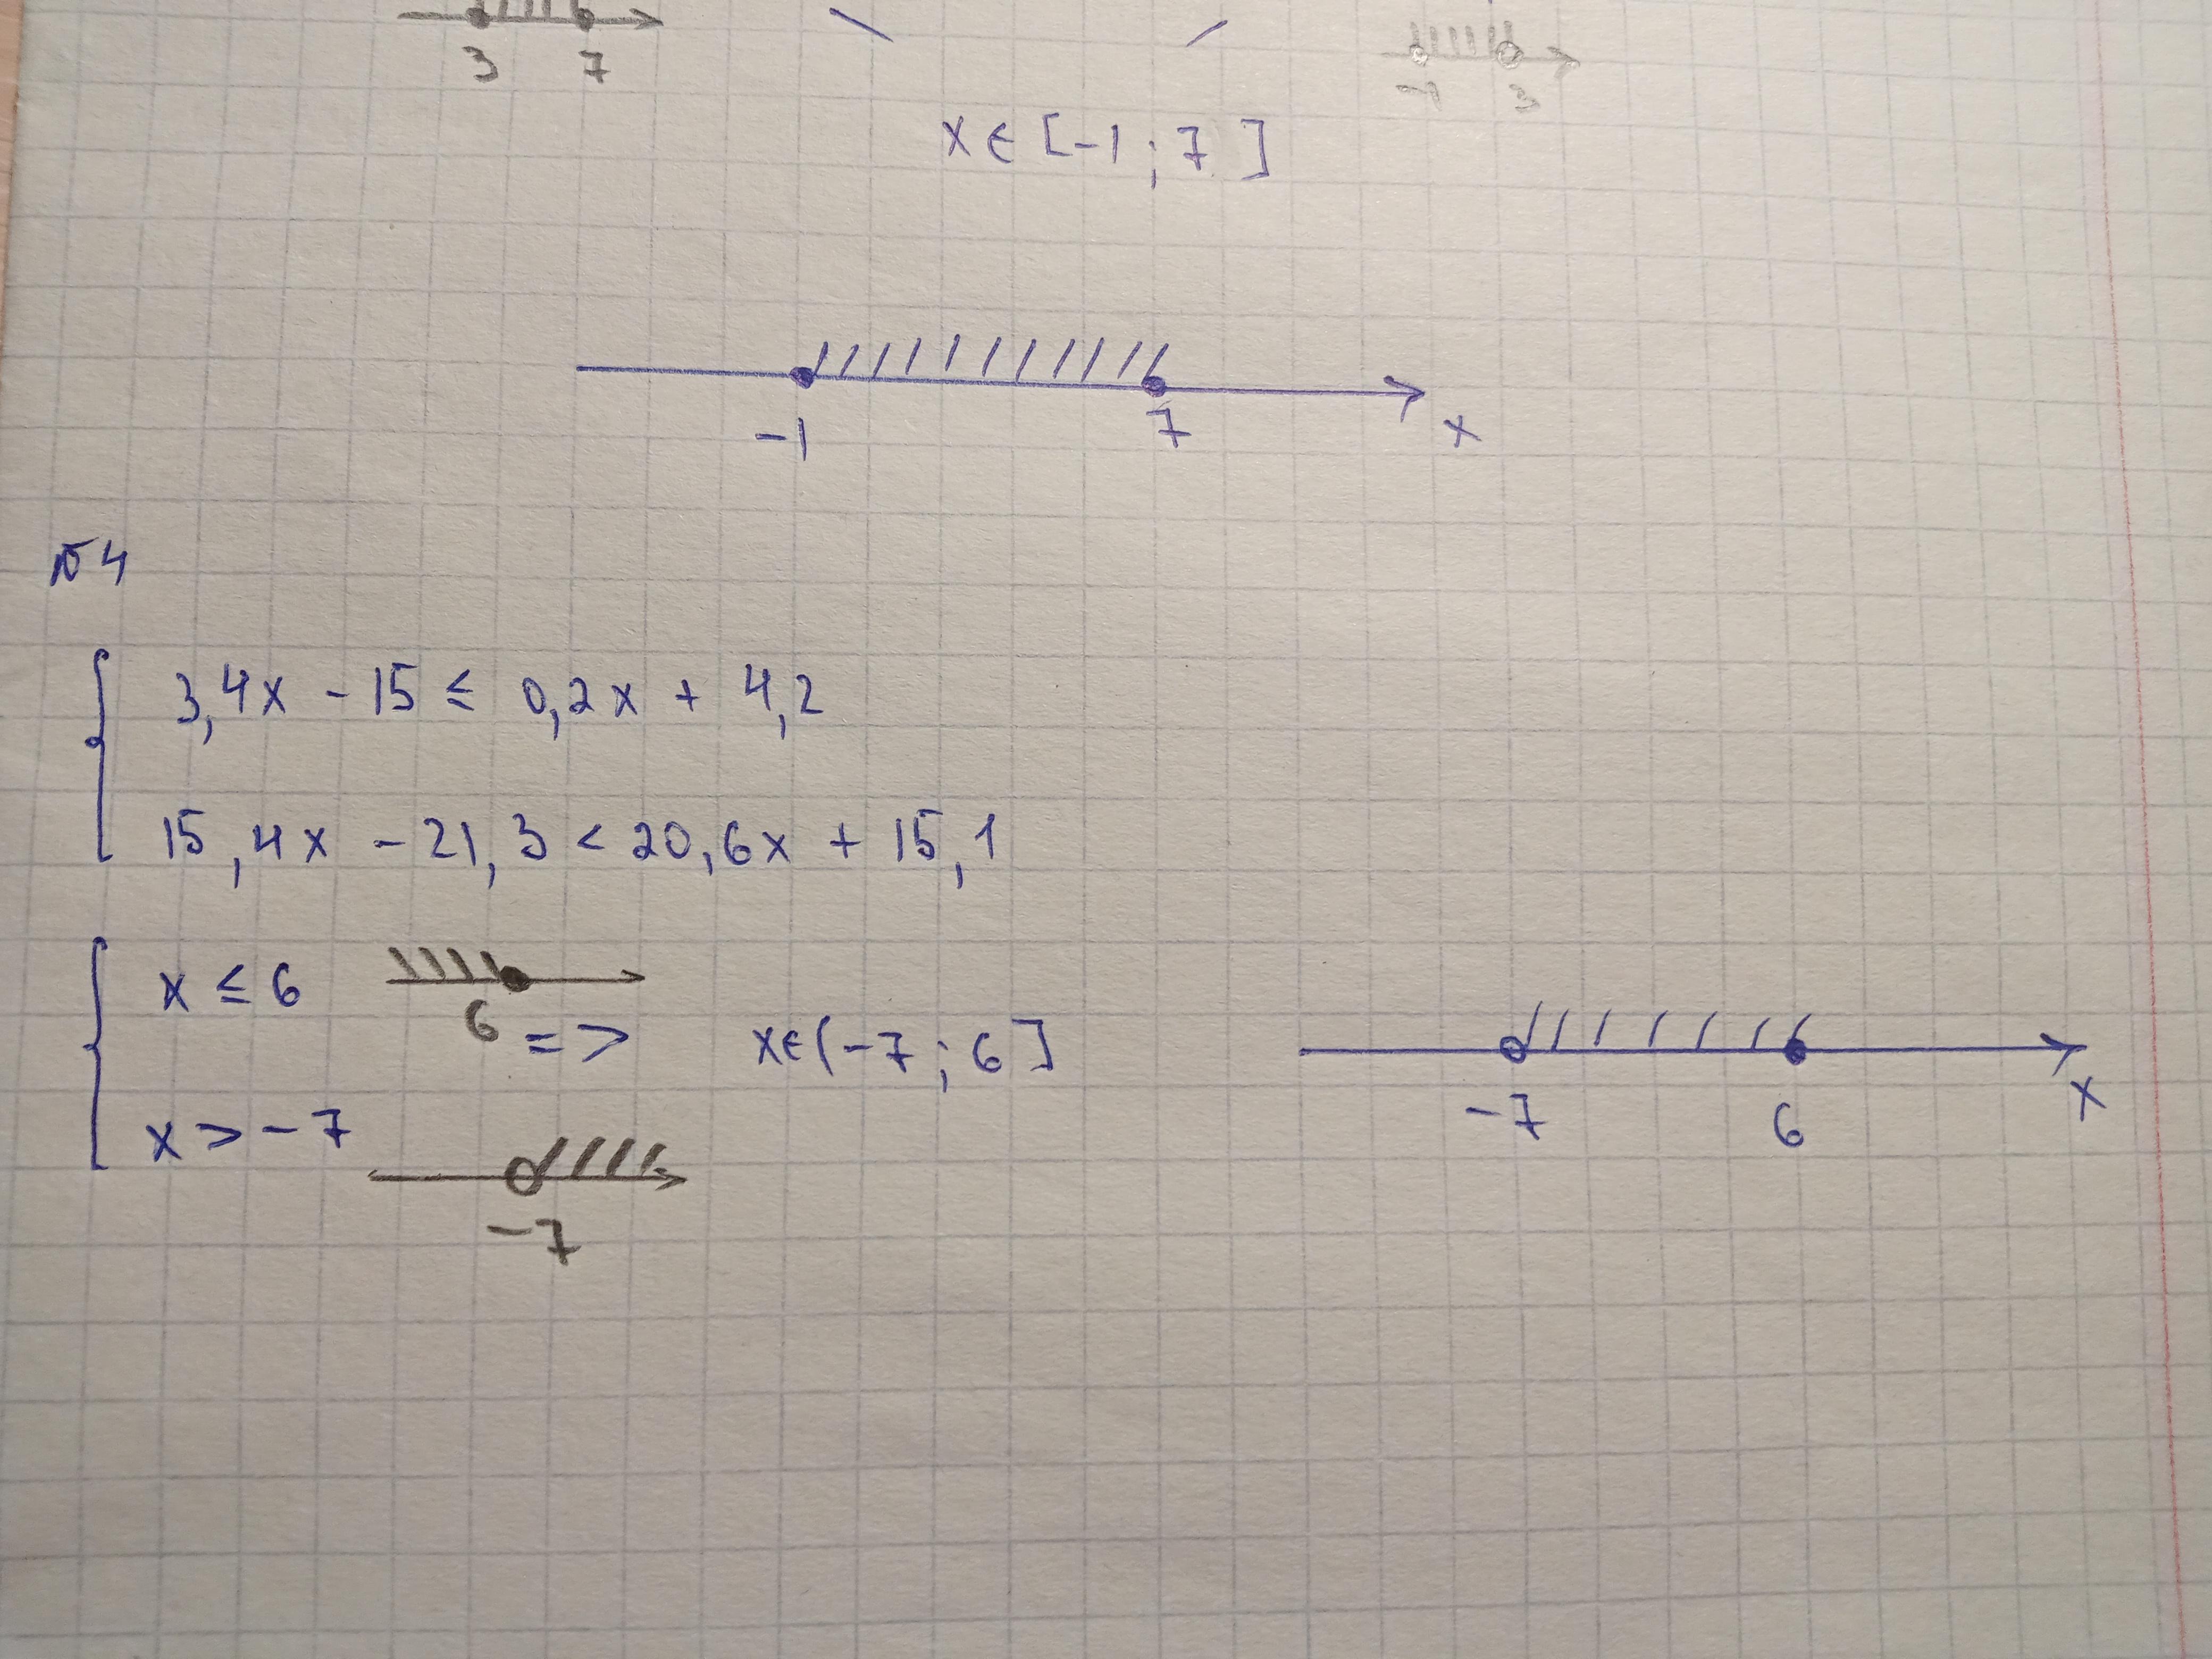 3 7
-1 3
x ∈ [-1; 7]
-1 7 x
№4
{ 3,4x - 15 ≤ 0,2x + 4,2
15,4x - 21,3 < 20,6x + 15,1
{ x ≤ 6
6
=> x ∈ (-7; 6]
-7 6 x
x > -7
-7